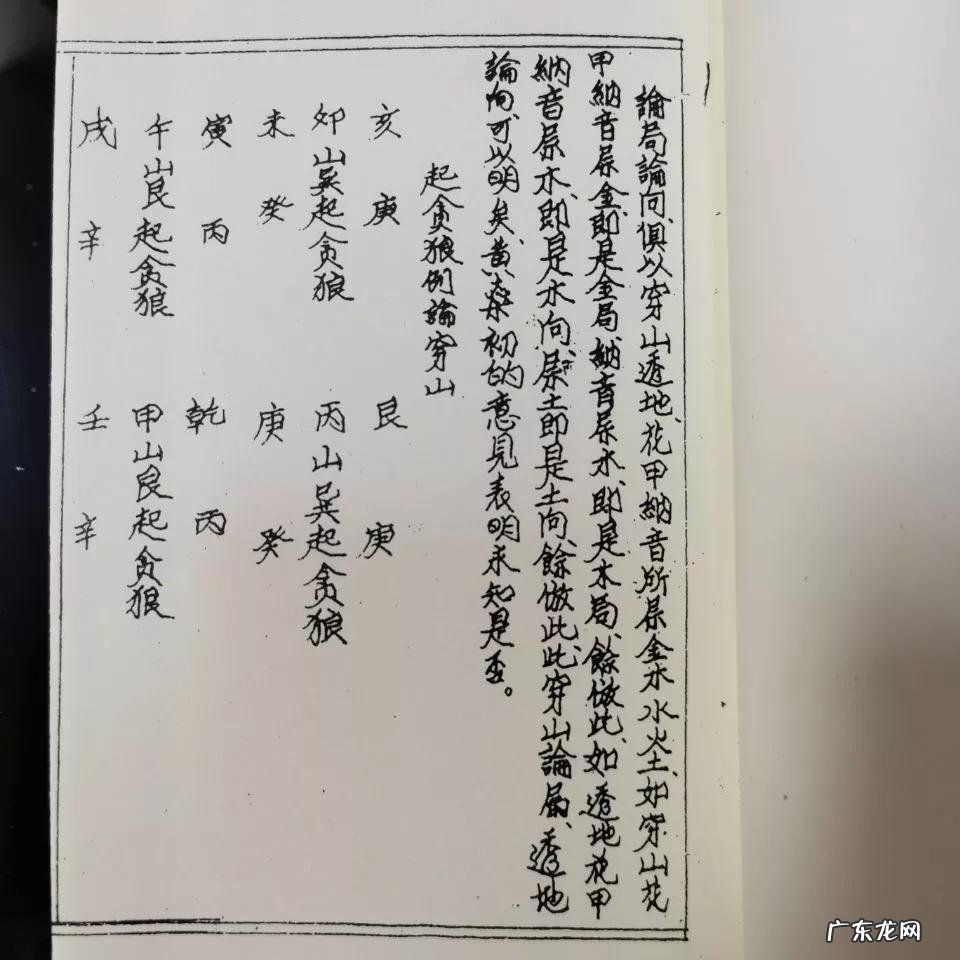 論局論向、俱以穿山透地、花甲納音所屬金木水火土、如穿山花
甲納音屬金、即是金局、納音屬木、即是木局、餘倣此、如透地花甲
納音屬水、即是水向、屬土即是土向、餘倣此、此穿山論局、透地
論向、可以明矣、黃榮初的意見表明未知是否。
起貪狼例論穿山
亥 庚 艮 庚
卯山巽起貪狼 丙山巽起貪狼
未 癸 庚 癸
寅 丙 乾 丙
午山艮起貪狼 甲山艮起貪狼
戌 辛 壬 辛
广东龙网